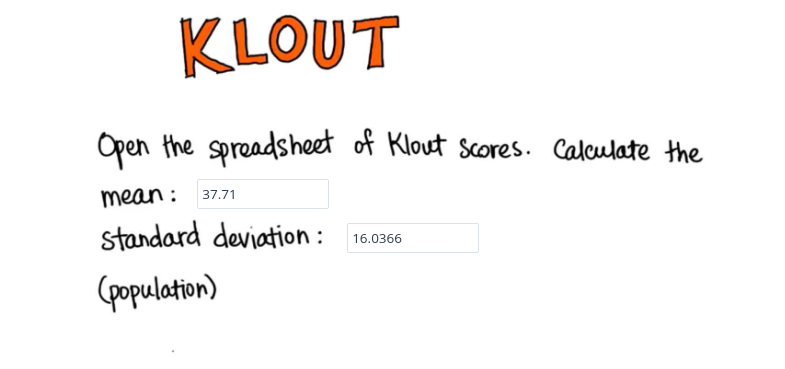 KLOUT
Open the spreadsheet of Klout scores. Calculate the
mean: 37.71
standard deviation: 16.0366
(population)